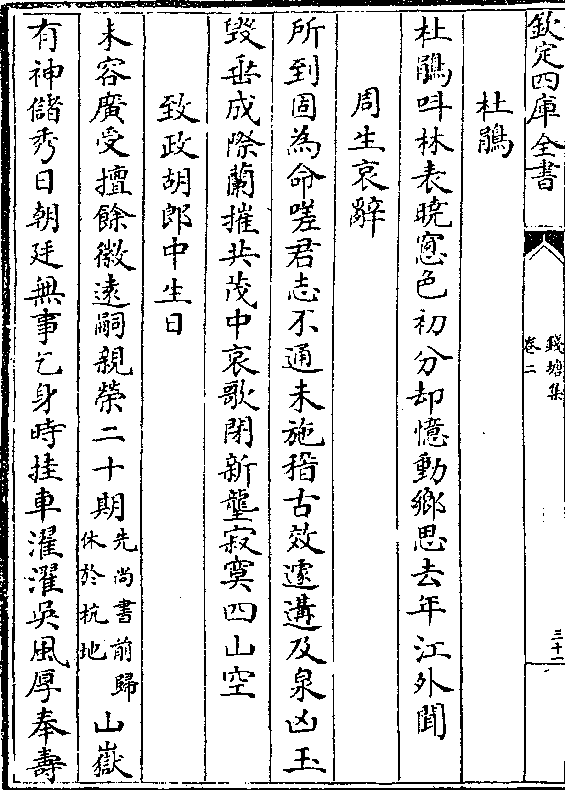 欽定四庫全書
錢塘集
卷二
三十一
杜鵑
杜鵑呌林表曉窻色初分却憶動鄉思去年江外聞
周生哀辭
所到固為命嗟君志不通未施稽古效遽遘及泉凶玉
毀垂成際蘭摧共茂中哀歌閉新壟寂寞四山空
致政胡郎中生日
未容廣受擅餘徽逺嗣親榮二十期先尚書前歸休於杭地山嶽
有神儲秀日朝廷無事乞身時挂車濯濯吳風厚奉壽